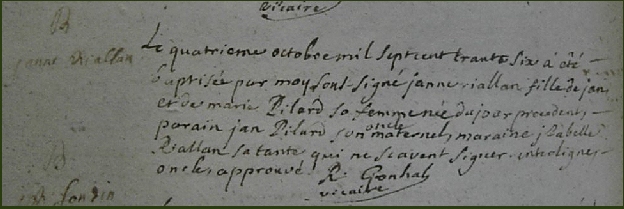 vicaire
B
janne Riallan
le quatrieme octobre mil septcent trante six a été
baptisée par moy sous signé janne riallan fille de jan
et de marie Pilard sa femme née du jour precedent
parain jan Pilard son oncle maternel, maraine ysabelle
Riallan sa tante qui ne scavent signer. interlignes
oncles approuvé
R. Gonhal
vicaire
B